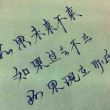 如果未来不来
如果过去不去
如果现在